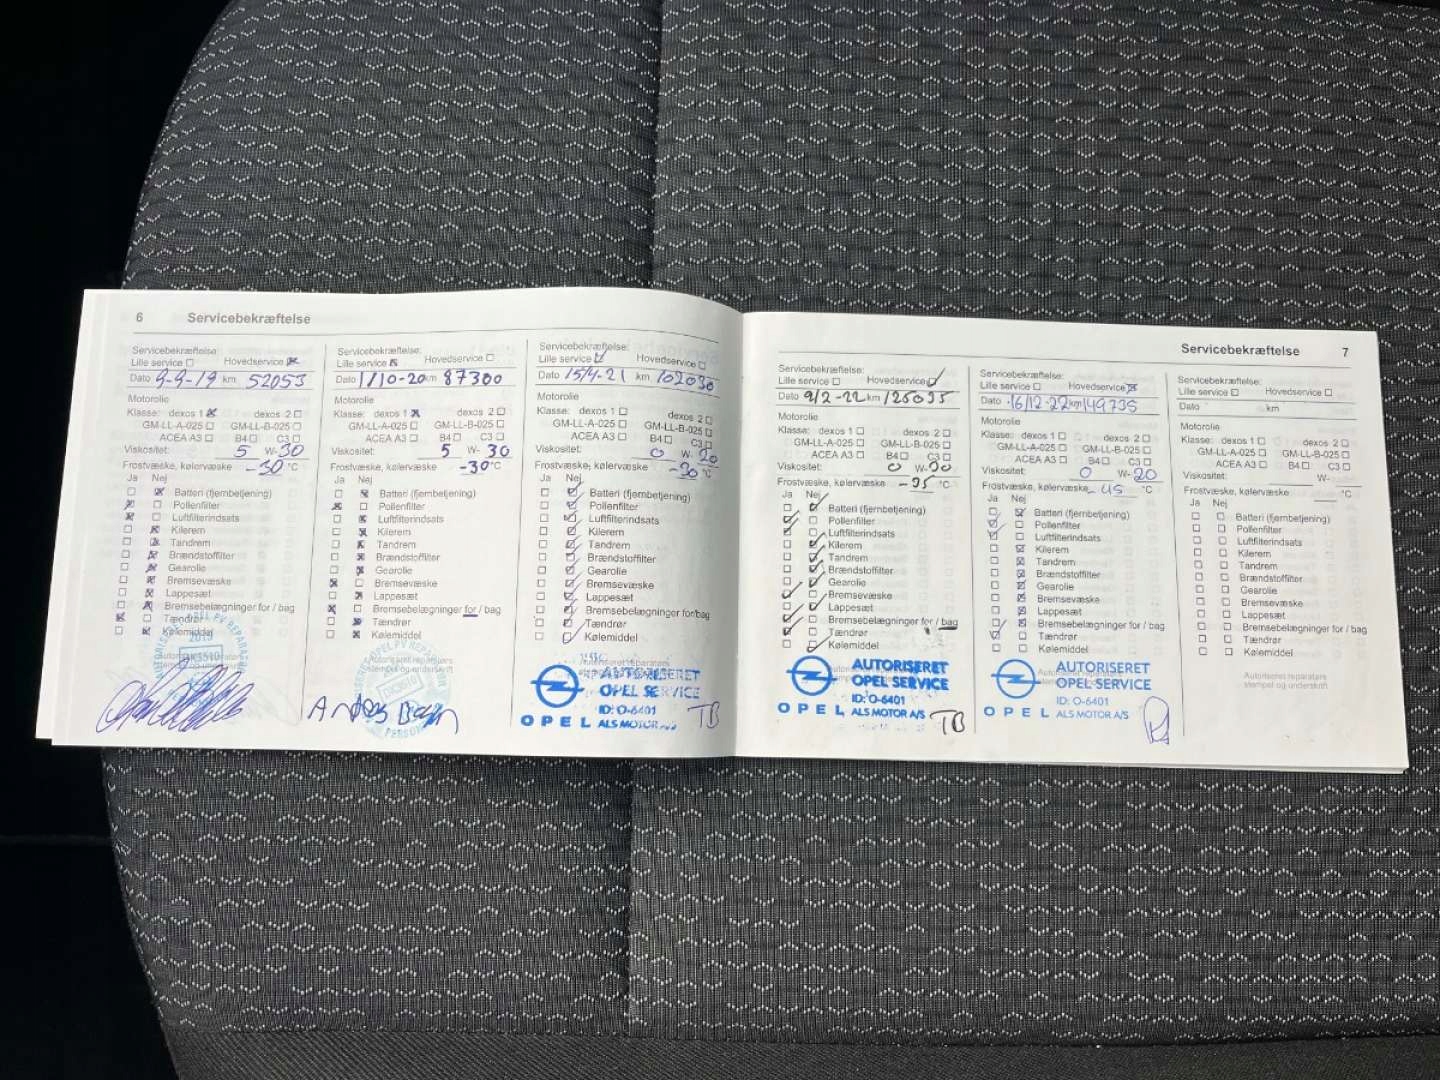 6 Servicebekræftelse
Servicebekræftelse:
Lille service Hovedservice
Dato 9-9-19 km 52053
Motorolie
Klasse: dexos 1 dexos 2
GM-LL-A-025 GM-LL-B-025
ACEA A3 B4 C3
Viskositet: 5 W-30
Frostvæske, kølervæske -30 °C
Ja Nej
Batteri (fjernbetjening)
Pollenfilter
Luftfilterindsats
Kilerem
Tandrem
Brændstoffilter
Gearolie
Bremsevæske
Lappesæt
Bremsebelægninger for / bag
Tændrør
Kølemiddel
Servicebekræftelse:
Lille service Hovedservice
Dato 1/10-20 km 87300
Motorolie
Klasse: dexos 1 dexos 2
GM-LL-A-025 GM-LL-B-025
ACEA A3 B4 C3
Viskositet: 5 W-30
Frostvæske, kølervæske -30 °C
Ja Nej
Batteri (fjernbetjening)
Pollenfilter
Luftfilterindsats
Kilerem
Tandrem
Brændstoffilter
Gearolie
Bremsevæske
Lappesæt
Bremsebelægninger for / bag
Tændrør
Kølemiddel
Servicebekræftelse:
Lille service Hovedservice
Dato 15/4-21 km 102030
Motorolie
Klasse: dexos 1 dexos 2
GM-LL-A-025 GM-LL-B-025
ACEA A3 B4 C3
Viskositet: 0 W-20
Frostvæske, kølervæske -30 °C
Ja Nej
Batteri (fjernbetjening)
Pollenfilter
Luftfilterindsats
Kilerem
Tandrem
Brændstoffilter
Gearolie
Bremsevæske
Lappesæt
Bremsebelægninger for/bag
Tændrør
Kølemiddel
AUTORISERET
OPEL SERVICE
ID: O-6401
OPEL ALS MOTOR A/S TB
Servicebekræftelse 7
Servicebekræftelse:
Lille service Hovedservice
Dato 9/2-22 km 125035
Motorolie
Klasse: dexos 1 dexos 2
GM-LL-A-025 GM-LL-B-025
ACEA A3 B4 C3
Viskositet: 0 W-30
Frostvæske, kølervæske -35 °C
Ja Nej
Batteri (fjernbetjening)
Pollenfilter
Luftfilterindsats
Kilerem
Tandrem
Brændstoffilter
Gearolie
Bremsevæske
Lappesæt
Bremsebelægninger for / bag
Tændrør
Kølemiddel
AUTORISERET
OPEL SERVICE
ID: O-6401
OPEL ALS MOTOR A/S TB
Servicebekræftelse:
Lille service Hovedservice
Dato 16/12-22 km 149735
Motorolie
Klasse: dexos 1 dexos 2
GM-LL-A-025 GM-LL-B-025
ACEA A3 B4 C3
Viskositet: 0 W-20
Frostvæske, kølervæske -45 °C
Ja Nej
Batteri (fjernbetjening)
Pollenfilter
Luftfilterindsats
Kilerem
Tandrem
Brændstoffilter
Gearolie
Bremsevæske
Lappesæt
Bremsebelægninger for / bag
Tændrør
Kølemiddel
AUTORISERET
OPEL SERVICE
ID: O-6401
OPEL ALS MOTOR A/S
Servicebekræftelse:
Lille service Hovedservice
Dato km
Motorolie
Klasse: dexos 1 dexos 2
GM-LL-A-025 GM-LL-B-025
ACEA A3 B4 C3
Viskositet: W-
Frostvæske, kølervæske °C
Ja Nej
Batteri (fjernbetjening)
Pollenfilter
Luftfilterindsats
Kilerem
Tandrem
Brændstoffilter
Gearolie
Bremsevæske
Lappesæt
Bremsebelægninger for / bag
Tændrør
Kølemiddel
Autoriseret reparatørs
stempel og underskrift